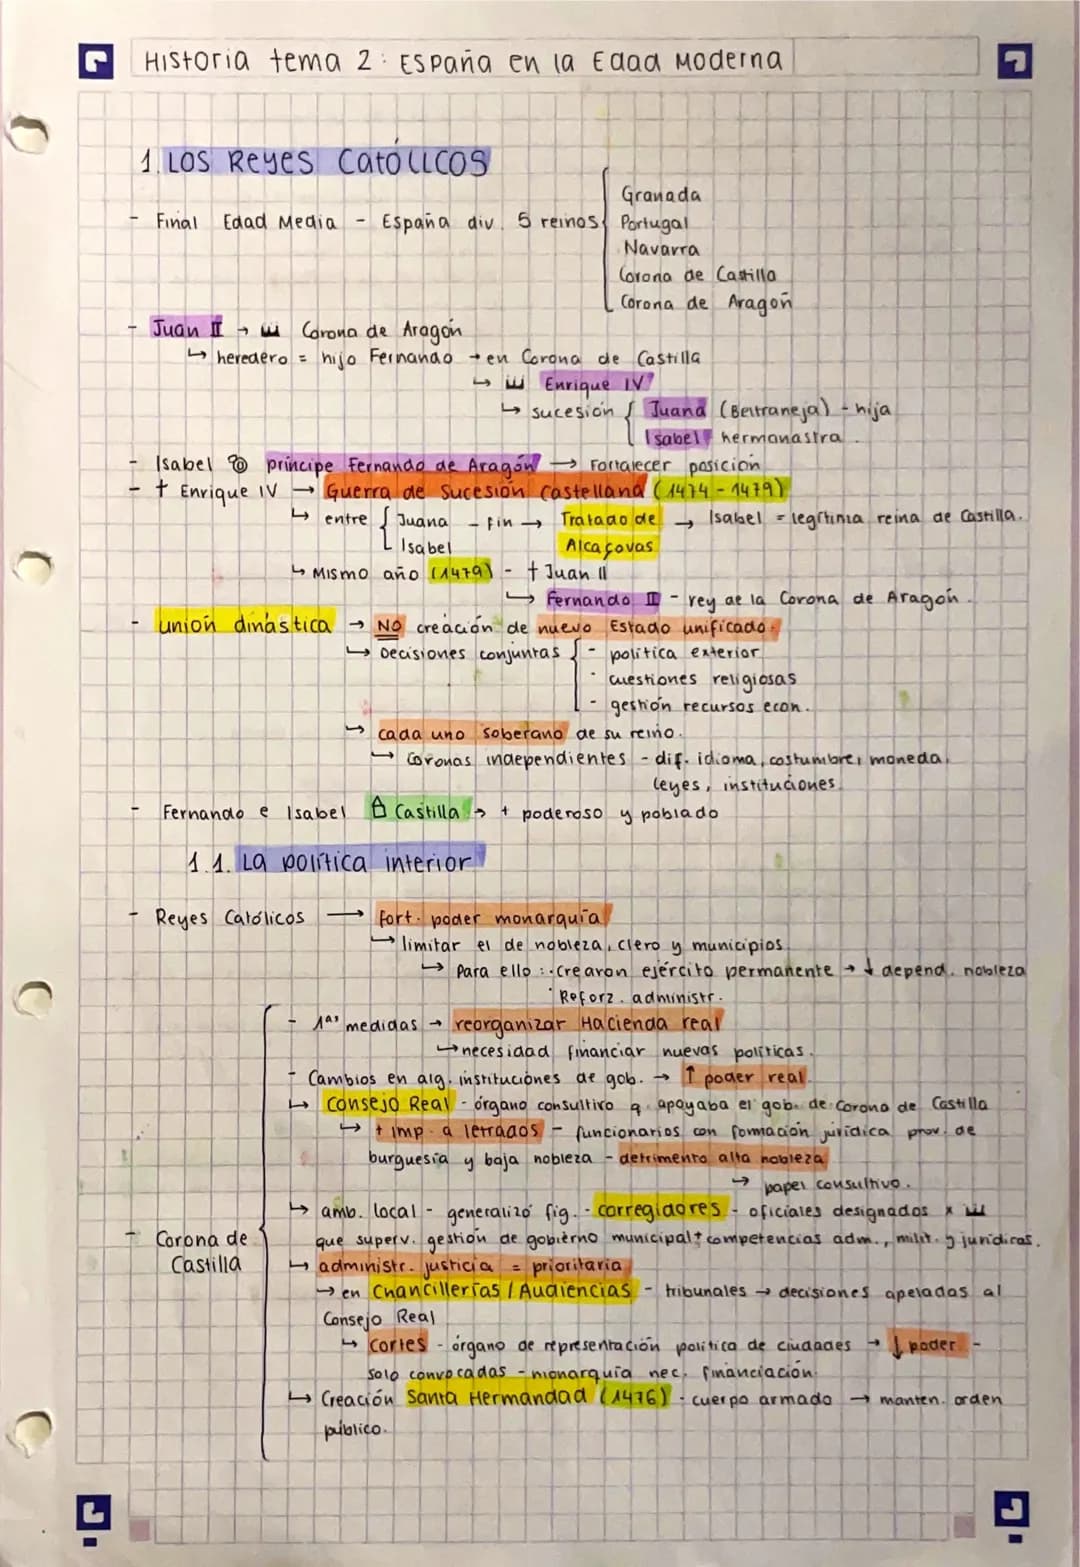 Historia tema 2: España en la Edad Moderna
1. Los Reyes Católicos
- Final Edad Media - España div. 5 reinos
Granada
Portugal
Navarra
Corona de Castilla
Corona de Aragón
- Juan II → Corona de Aragón
↳ heredero = hijo Fernando → en Corona de Castilla
↳ Enrique IV
↳ sucesión { Juana (Beltraneja) - hija
Isabel hermanastra.
- Isabel príncipe Fernando de Aragón → Fortalecer posición
- † Enrique IV → Guerra de Sucesión Castellana (1474 - 1479)
↳ entre { Juana - fin → Tratado de → Isabel = legítima reina de Castilla.
Isabel Alcaçovas
↳ Mismo año (1479) - † Juan II
↳ Fernando II - rey de la Corona de Aragón.
- unión dinástica → NO creación de nuevo Estado unificado.
↳ Decisiones conjuntas { - política exterior
- cuestiones religiosas
- gestión recursos econ.
↳ cada uno soberano de su reino.
↳ Coronas independientes - dif. idioma, costumbre, moneda,
leyes, instituciones.
- Fernando e Isabel Castilla → + poderoso y poblado
1.1. La política interior
- Reyes Católicos → fort. poder monarquía
↳ limitar el de nobleza, clero y municipios.
↳ Para ello: · Crearon ejército permanente → ↓ depend. nobleza
· Reforz. administr.
- Corona de Castilla
- 1as medidas → reorganizar Hacienda real
↳ necesidad financiar nuevas políticas.
- Cambios en alg. instituciones de gob. → ↑ poder real.
↳ Consejo Real - órgano consultivo q. apoyaba el gob. de Corona de Castilla
↳ + imp. a letrados - funcionarios con formación jurídica prov. de
burguesía y baja nobleza - detrimento alta nobleza
↳ papel consultivo.
↳ amb. local - generalizó fig. - corregidores - oficiales designados x
que superv. gestión de gobierno municipal + competencias adm., milit. y jurídicas.
↳ administr. justicia = prioritaria
→ en Chancillerías / Audiencias - tribunales → decisiones apeladas al
Consejo Real
↳ Cortes - órgano de representación política de ciudades → ↓ poder -
solo convocadas - monarquía nec. financiación.
↳ Creación Santa Hermandad (1476) - cuerpo armado → manten. orden
público.